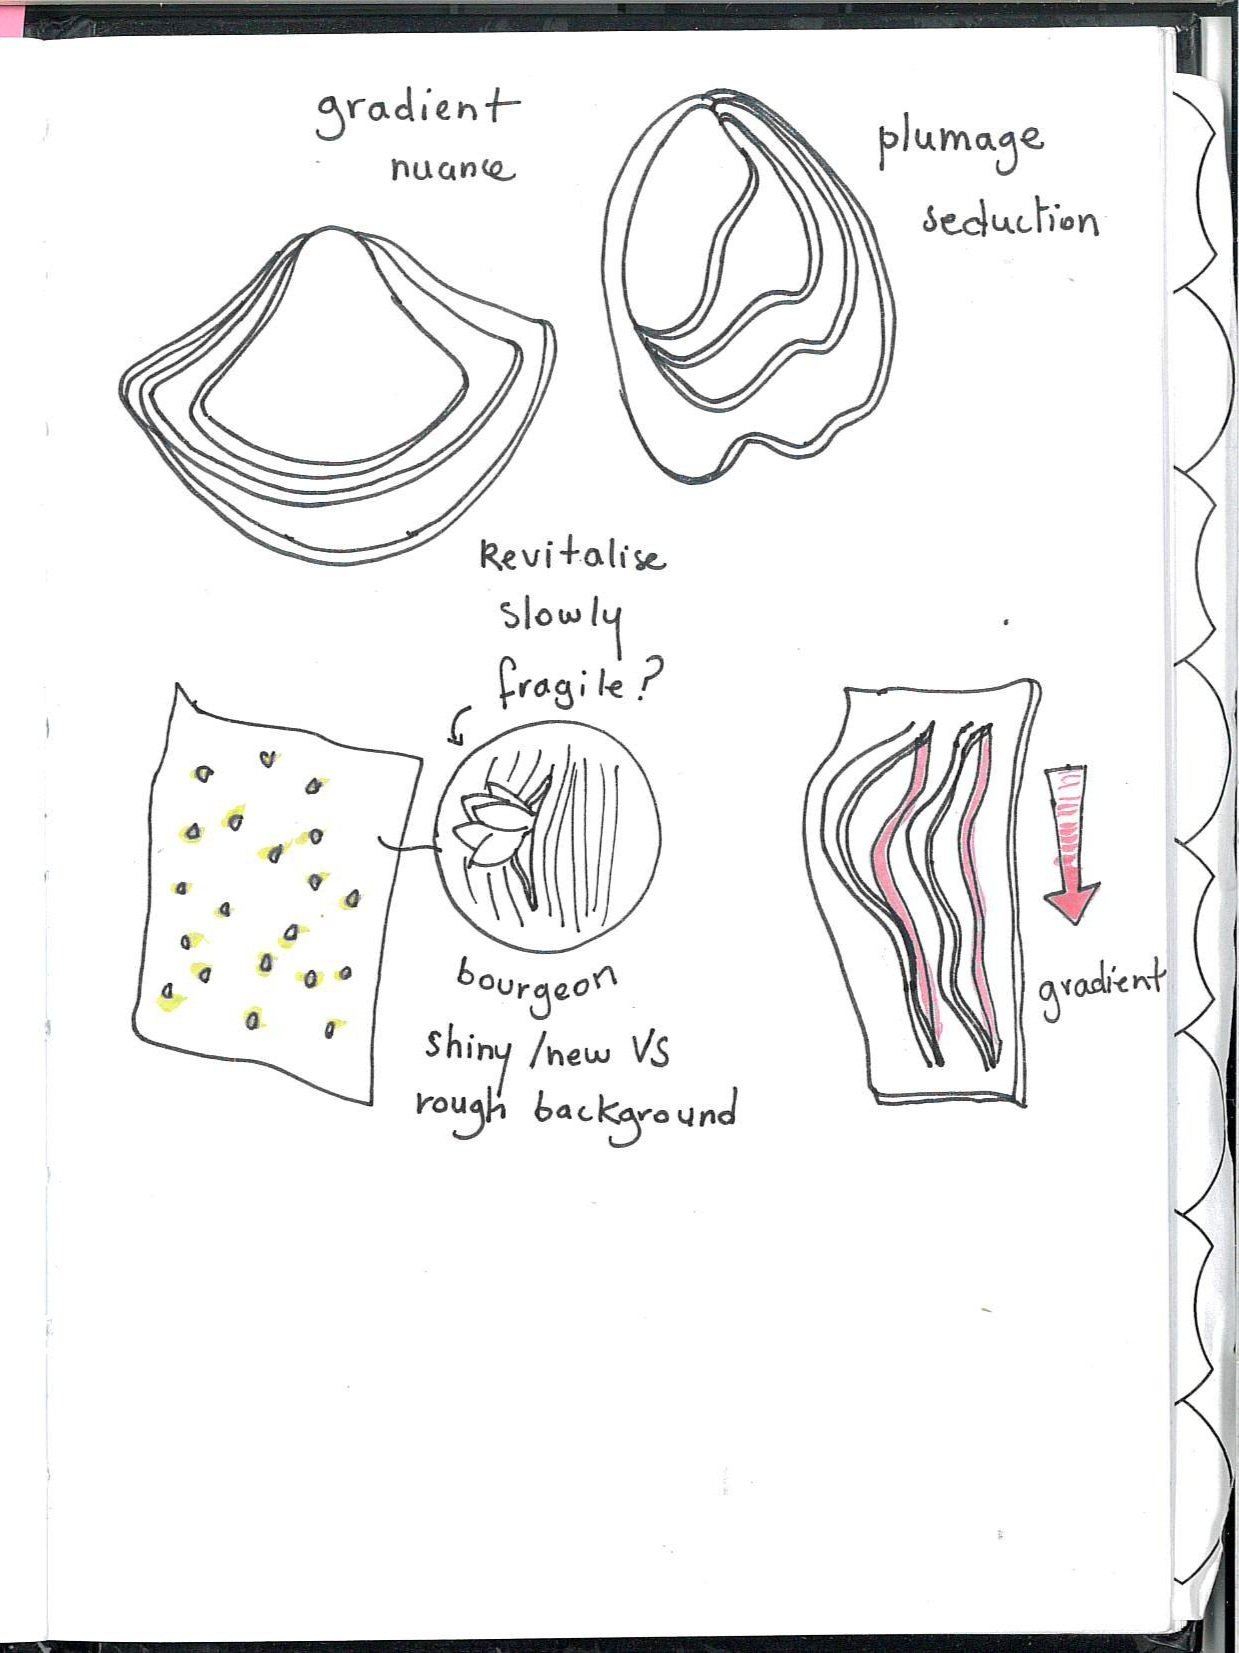 gradient
nuance
plumage
seduction
Revitalise
slowly
fragile?
bourgeon
shiny/new VS
rough background
gradient